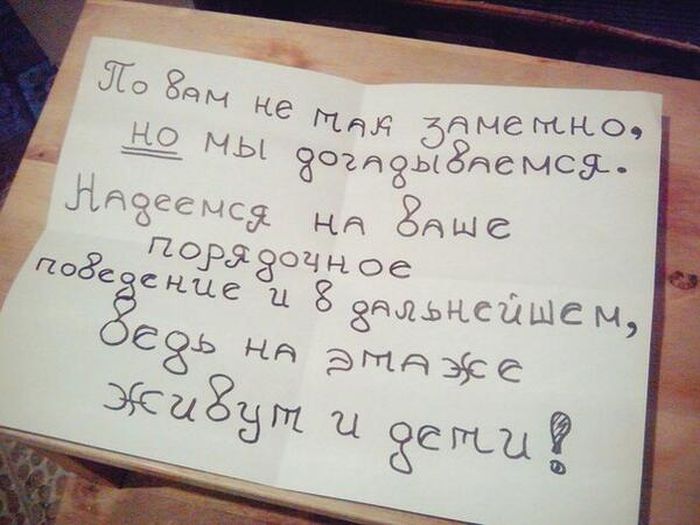 По вам не так заметно,
но мы догадываемся.
Надеемся на ваше
порядочное
поведение и в дальнейшем,
ведь на этаже
живут и дети!